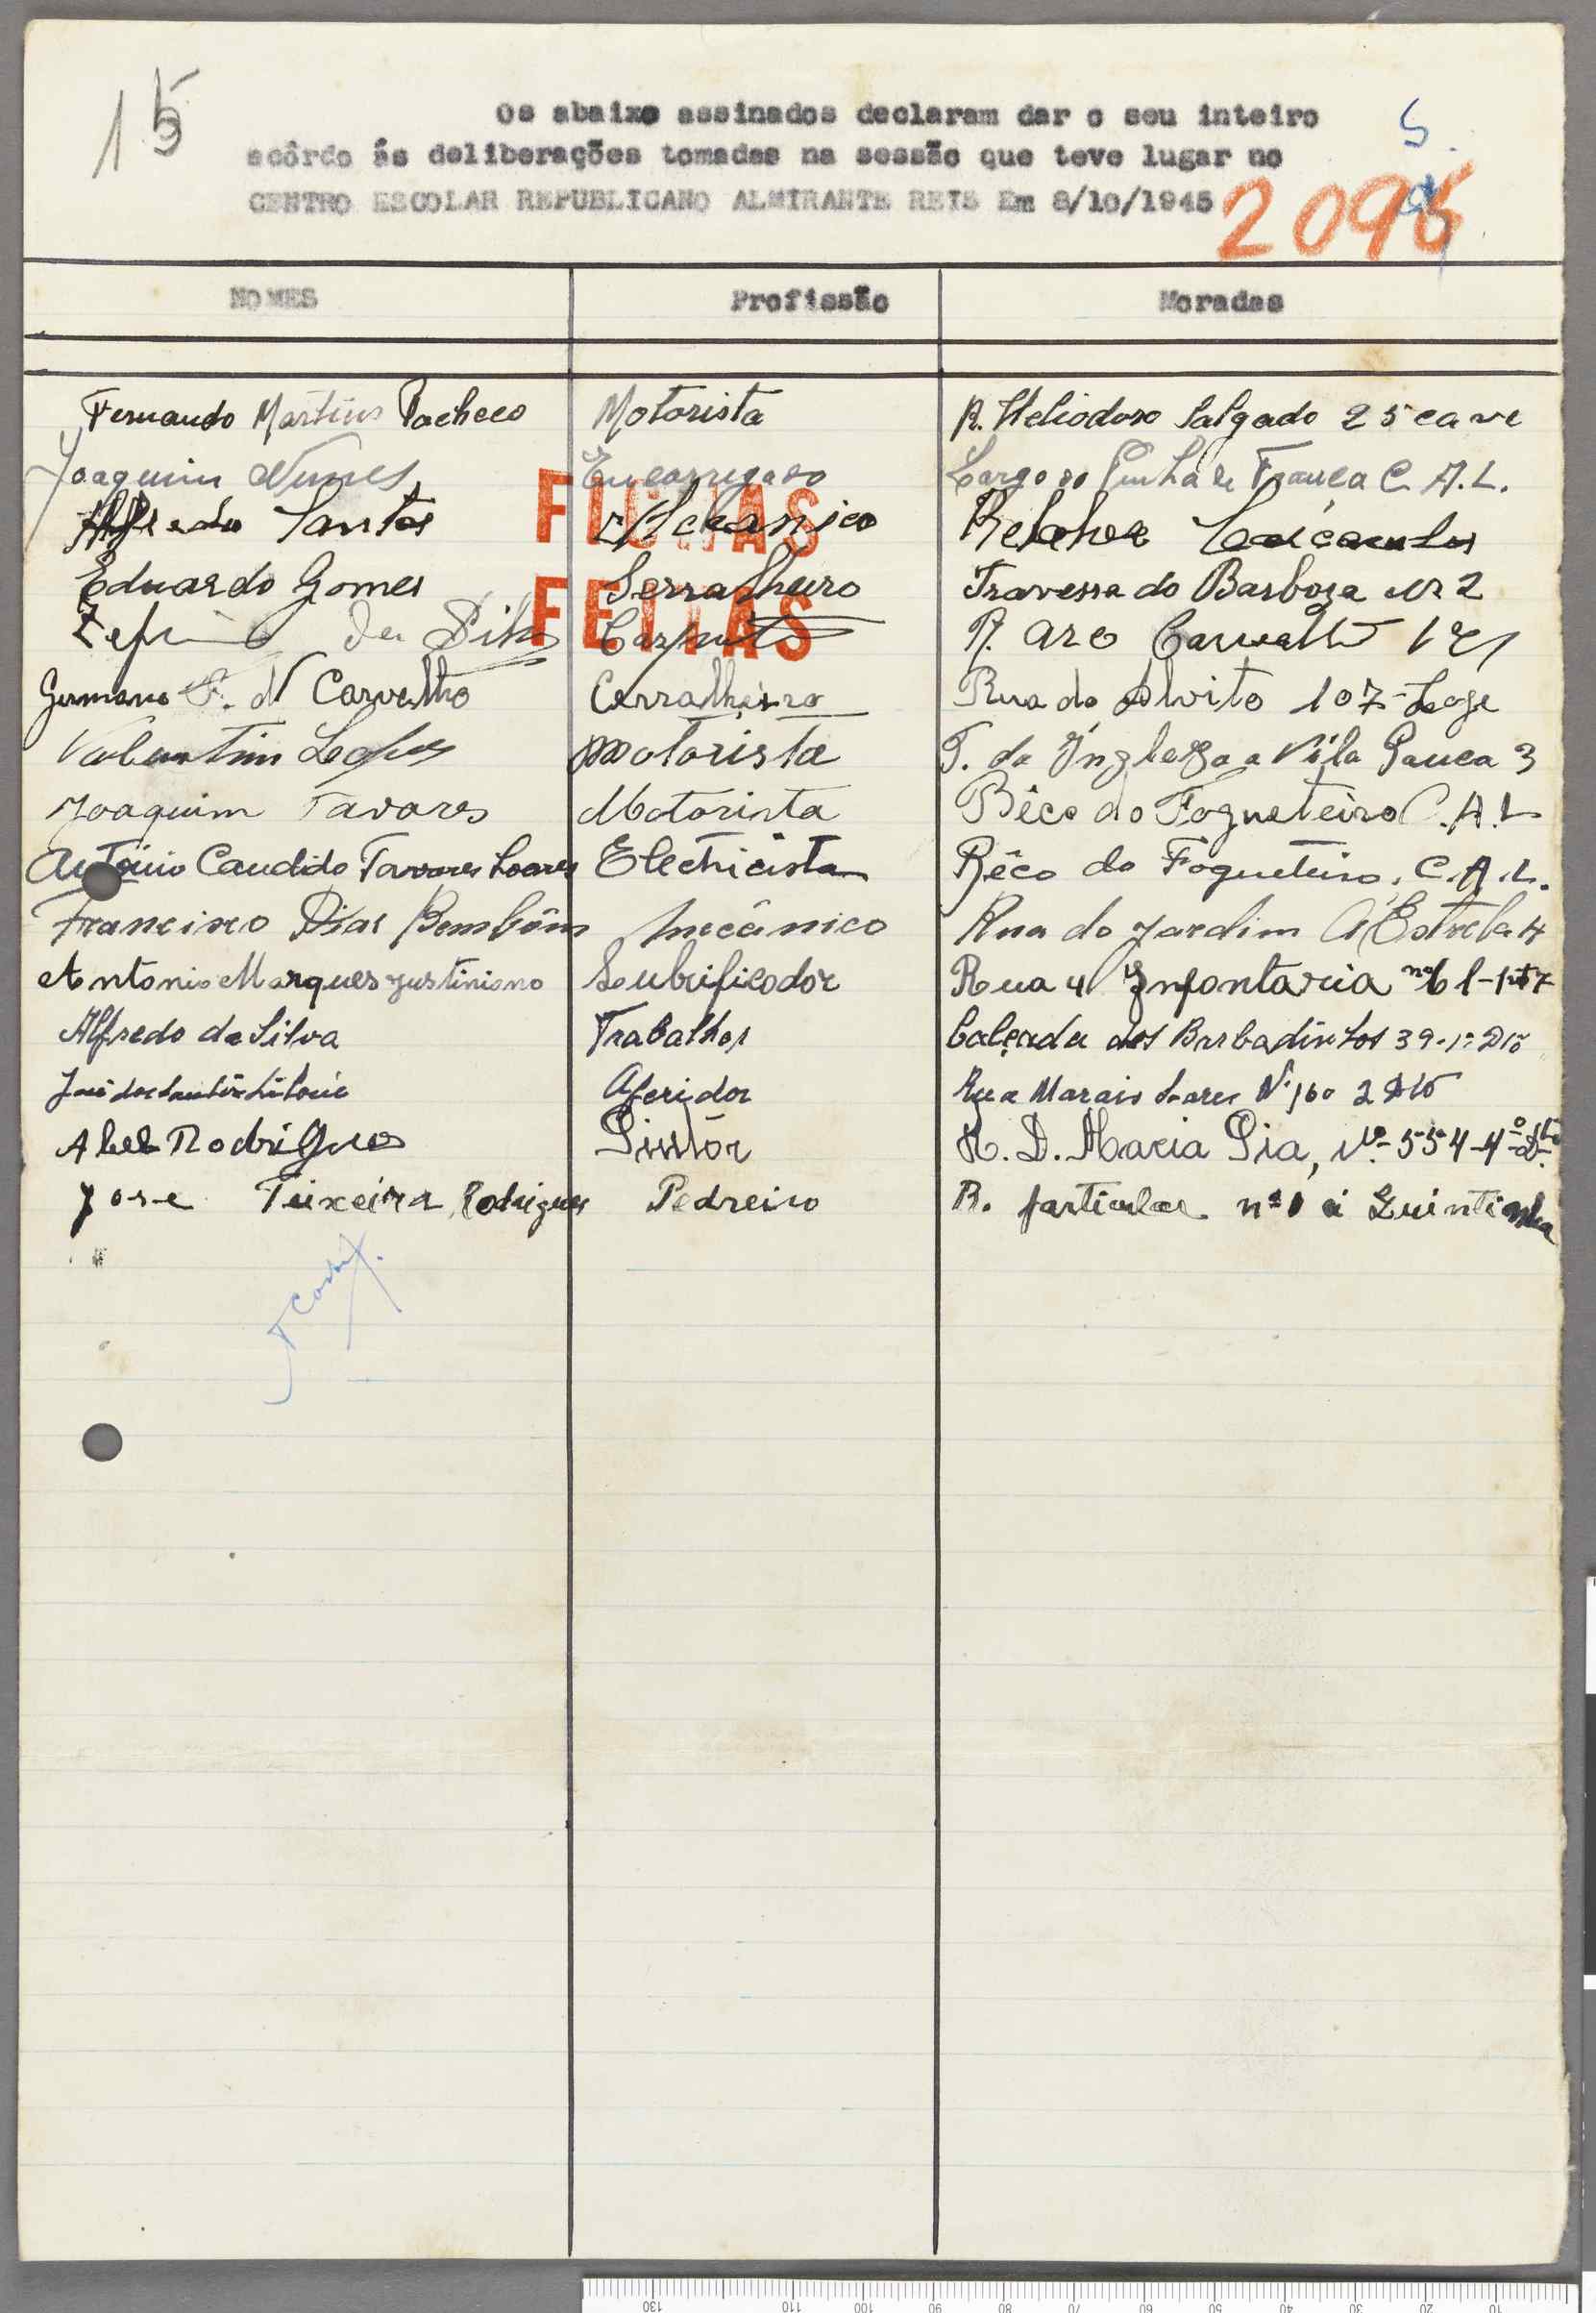 15
Os abaixo assinados declaram dar o seu inteiro
acôrdo ás deliberações tomadas na sessão que teve lugar no
CENTRO ESCOLAR REPUBLICANO ALMIRANTE REIS Em 8/10/1945
S.
209
NOMES Profissão Moradas
Fernando Martins Pacheco Motorista R. Heliodoro Salgado 25 cave
Joaquim Nunes Encarregado Largo da Penha de França C. A. L.
FICHAS
Alfredo Santos Mecanico
Eduardo Gomes Serralheiro Travessa do Barboza Nr 2
FEITAS
da Silva R. Carvalho
Germano F. d' Carvalho Cerralheiro Rua do Alvito 107-Loge
Valentim Lopes motorista T. da Ingleza a Vila Pauca 3
Joaquim Tavares Motorista Bêco do Fogueteiro C.A.L
António Candido Tavares Soares Electricista Bêco do Fogueteiro. C.A.L.
Francisco Dias Bembôm mecânico Rua do Jardim á Estrela 4
Antonio Marques Justiniano Lubrificador Rua 4 Infantaria nº 61-1º
Alfredo da Silva Trabalhor Calçada dos Barbadinhos 39-1º Dtº
José dos Santos Aferidor Rua Marais Soares Nº 160 2 Dtº
Abel Rodrigues Pintôr R. D. Maria Pia, Nº 554-4º-Dtº.
Jose Teixeira Rodrigues Pedreiro R. particular nº 1 á Quintinha